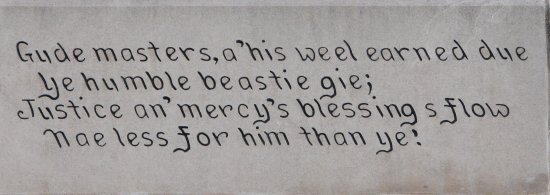 Gude masters, a' his weel earned due
Ye humble beastie gie;
Justice an' mercy's blessing s flow
Nae less for him than ye!